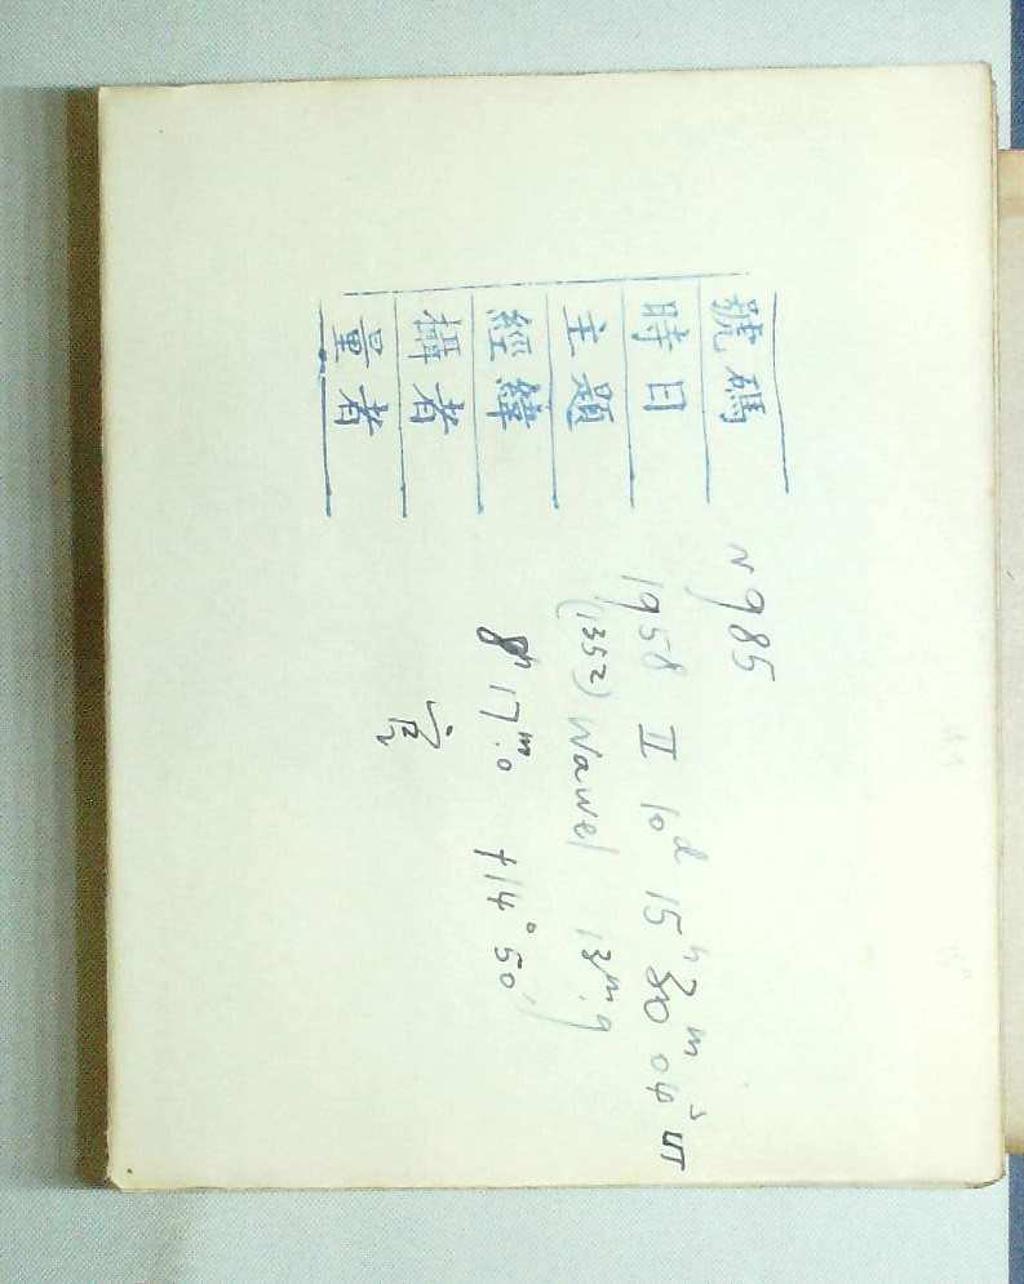 號碼 N985
時日 1958 II 10ᵈ 15ʰ 30ᵐ 04ˢ UT
主題 (1352) Wawel 13ᵐ.9
經緯 8ʰ 17ᵐ.0 +14° 50′
攝者
量者